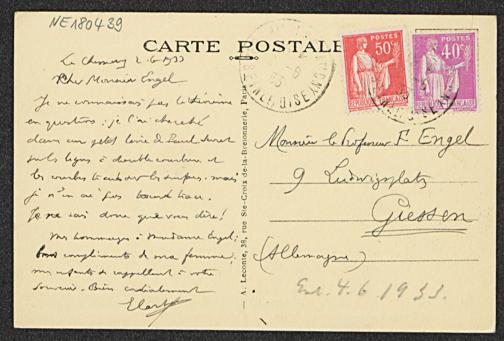 NE180439
CARTE POSTALE
Le Chesnay 2-6-1933
Cher Monsieur Engel
Je ne connaissais pas le théorème
en question; je l'ai cherché
dans un petit livre de Paul
sur les lignes à double courbure et
les courbes tracées sur les surfaces, mais
je n'ai pas
Je ne sais donc que vous dire!
Mes hommages à Madame Engel;
compliments de ma femme;
mes enfants se rappellent à votre
souvenir. Bien cordialement
E Cartan
A. Leconte, 38, rue Ste-Croix-de-la-Bretonnerie, Paris
POSTES
50c
POSTES
40c
Monsieur le Professeur F. Engel
9 Ludwigsplatz
Giessen
(Allemagne)
4.6.1933.